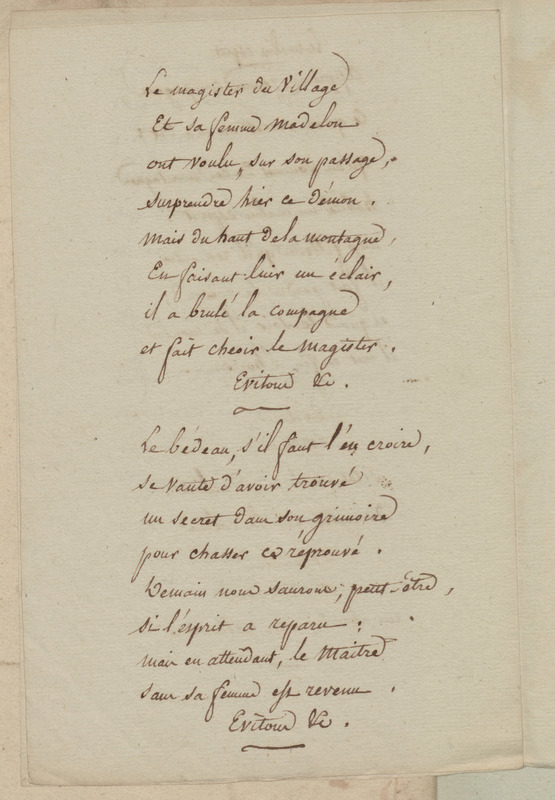 Le magister du Village
Et sa femme Madelon
ont voulu, sur son passage,
surprendre hier ce démon.
mais du haut de la montagne,
En faisant luir un éclair,
il a brulé la compagne
et fait cheoir le Magister.
Evitons &c.
Le bédeau, s'il faut l'en croire,
se vante d'avoir trouvé
un secret dans son grimoire
pour chasser ce réprouvé.
Demain nous saurons, peut-être,
si l'esprit a reparu:
mais en attendant, le Maitre
sans sa femme est revenu.
Evitons &c.